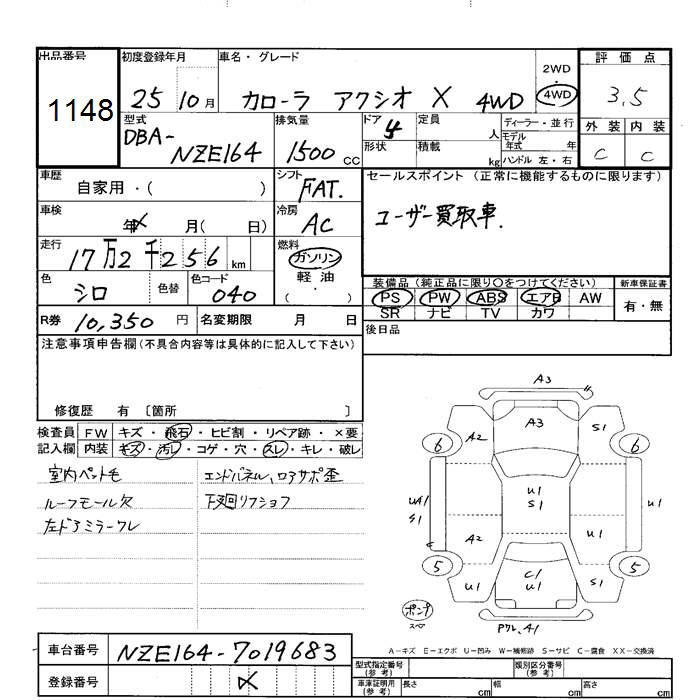 出品番号 初度登録年月 車名・グレード 2WD 4WD 評価点
1148 25 10月 カローラ アクシオ X 4WD 3.5
型式 排気量 ドア 定員 ディーラー・並行 外装 内装
DBA-NZE164 1500cc 4 人 モデル年式 年 C C
形状 積載 kg ハンドル 左・右
車歴 自家用・( ) シフト FAT. セールスポイント (正常に機能するものに限ります)
車検 年 月( 日) 冷房 AC ユーザー買取車.
走行 17万2千256km 燃料 ガソリン・軽油・( )
色 シロ 色替 色コード 040 装備品(純正品に限り○をつけてください) 新車保証書
PS PW ABS エアB AW 有・無
SR ナビ TV カワ
R券 10,350円 名変期限 月 日 後日品
注意事項申告欄(不具合内容等は具体的に記入して下さい)
修復歴 有 〔箇所 〕
検査員 FW キズ・飛石・ヒビ割・リペア跡・×要
記入欄 内装 キズ・汚レ・コゲ・穴・スレ・キレ・破レ
室内ペット毛 エンドパネル、ロアサポ歪
ルーフモール欠 下廻リフショフ
左ドアミラーワレ
A3
A2 A3 S1
6 6
U1
S1
UA1
S1
U1
A2 U1
5 5
U1 C1 U1 S1
パンク
スペア
A1
A-キズ E-エクボ U-凹み W-補修跡 S-サビ C-腐食 XX-交換済
車台番号 NZE164-7019683
登録番号
型式指定番号(参考) 類別区分番号(参考)
車庫証明用(参考) 長さ cm 幅 cm 高さ cm